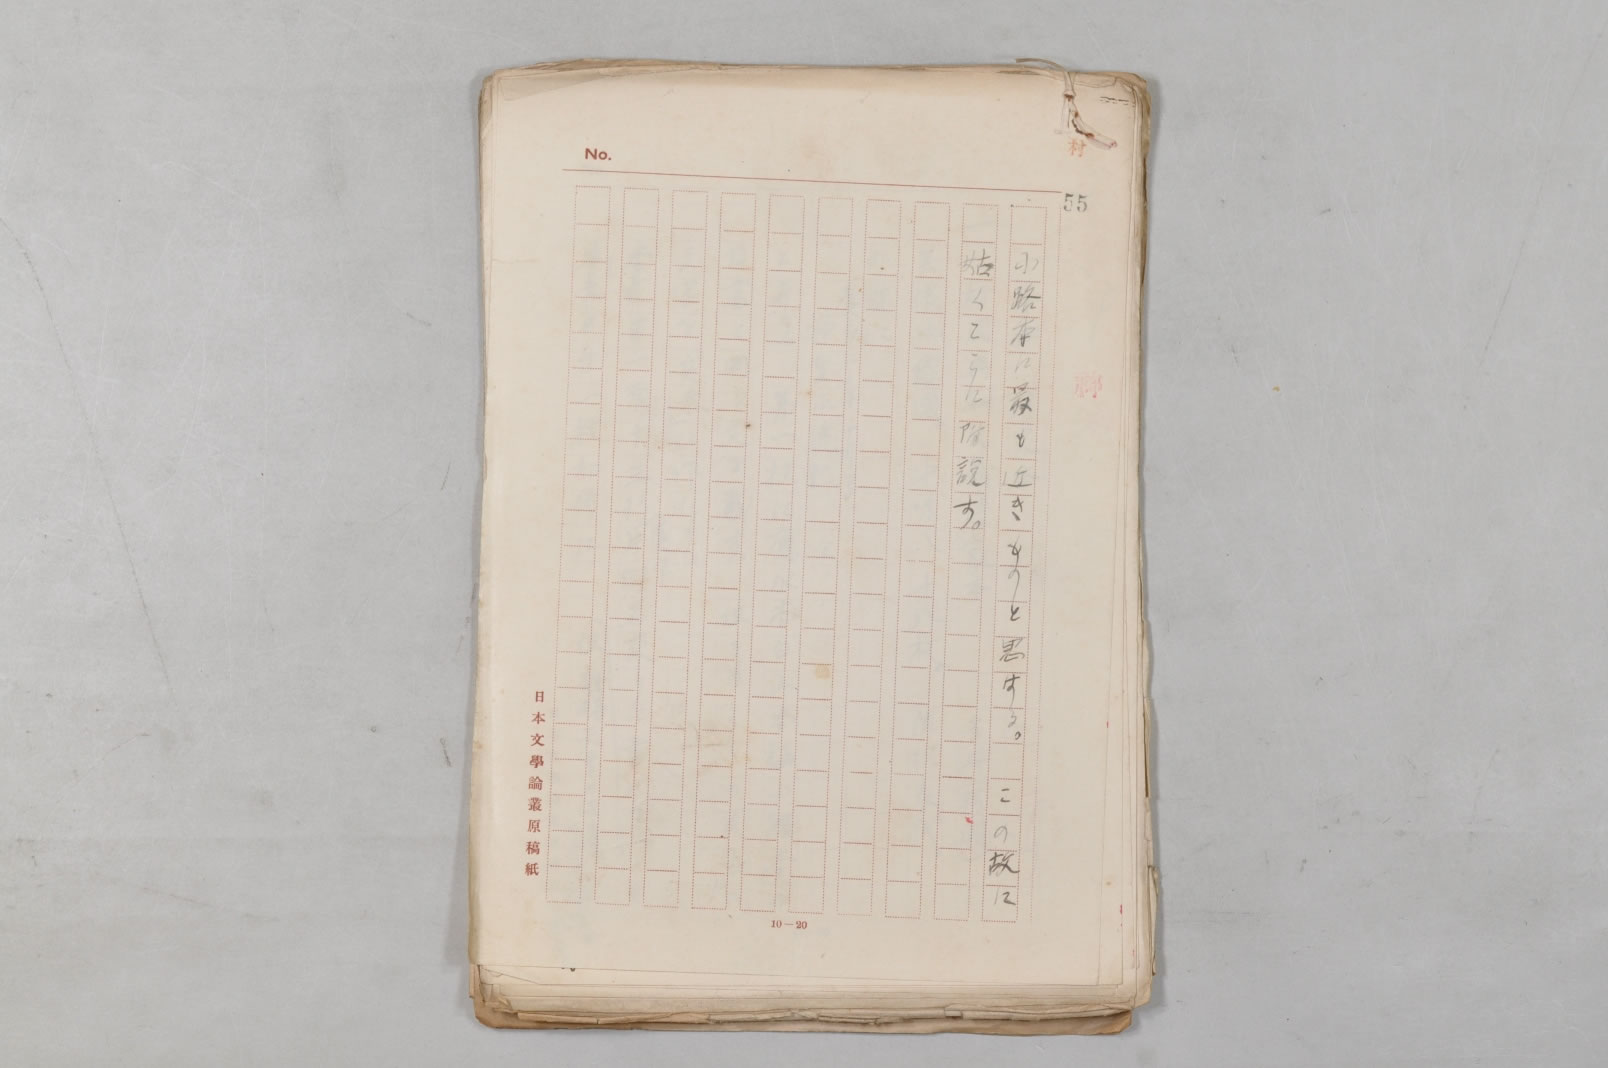 No.
村
55
小路本に最も近きものと思はる。 この故に
姑くこゝに附説す。
日本文學論叢原稿紙
10—20